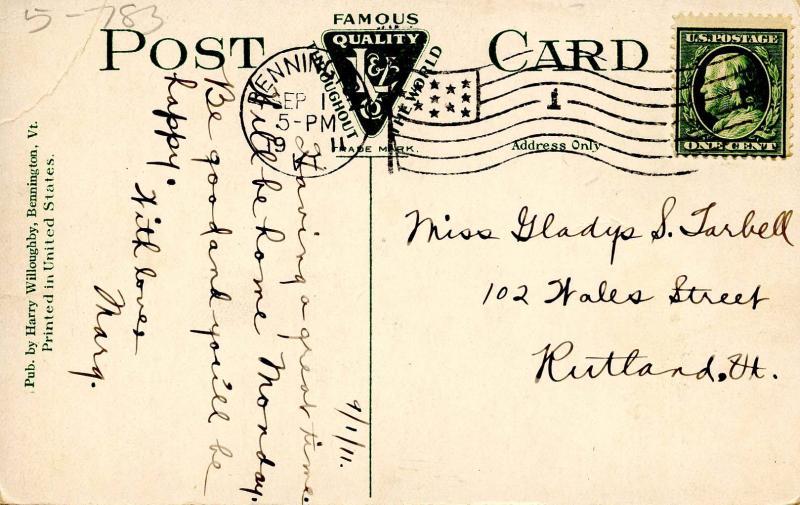 5-783
POST CARD
FAMOUS
QUALITY
THROUGHOUT THE WORLD
TRADE MARK.
SEP 1
5-PM
11
1
U.S. POSTAGE
ONE CENT
Address Only
Pub. by Harry Willoughby, Bennington, Vt.
Printed in United States.
9/1/11.
Having a great time.
Will be home Monday.
Be good and you'll be
happy.
With love
Marg.
Miss Gladys S. Tarbell
102 Wales Street
Rutland, Vt.